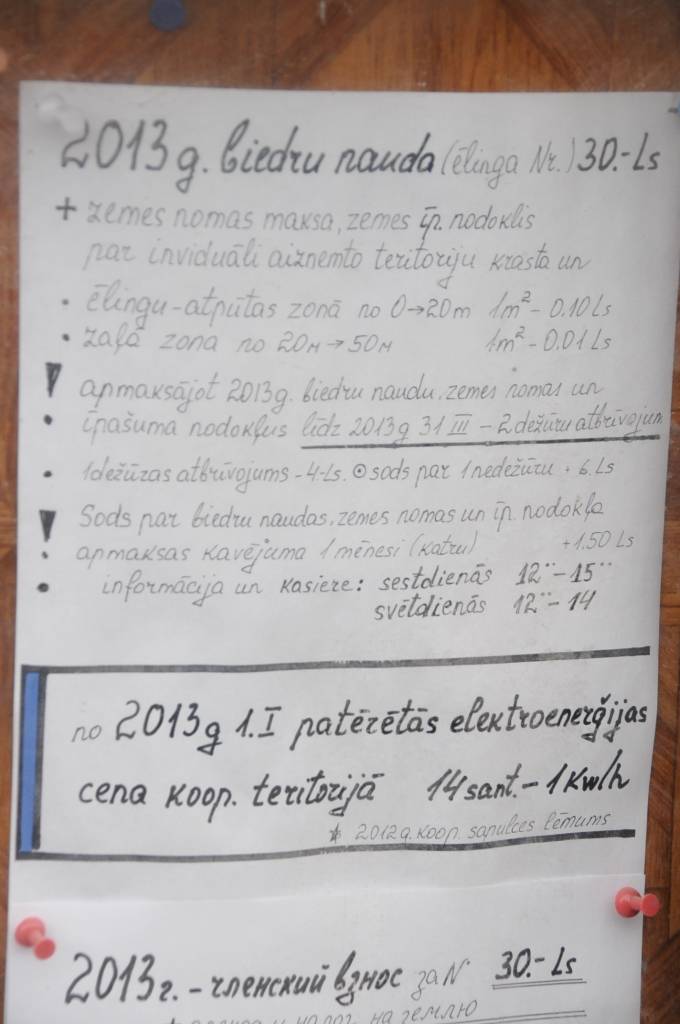 2013g. biedru nauda (ēlinga Nr.) 30.- Ls
+ zemes nomas maksa, zemes īp. nodoklis
par inviduāli aizņemto teritoriju krasta un
• ēlingu-atpūtas zonā no 0→20m 1m² - 0.10 Ls
• zaļā zona no 20м → 50м 1m² - 0.01 Ls
! apmaksājot 2013g. biedru naudu, zemes nomas un
īpašuma nodokļus līdz 2013g 31 III - 2 dežūru atbrīvojum
• 1 dežūras atbrīvojums - 4.-Ls. ⊙ sods par 1 nedežūru + 6. Ls
! Sods par biedru naudas, zemes nomas un īp. nodokļa
apmaksas kavējuma 1 mēnesi (katru) +1.50 Ls
• informācija un kasiere: sestdienās 12¨ - 15¨
svētdienās 12¨ - 14
no 2013g 1.I patērētās elektroenerģijas
cena koop. teritorijā 14 sant. - 1 Kw/h
* 2012g. koop. sapulces lēmums
2013г. - членский взнос за N° 30.- Ls
на землю